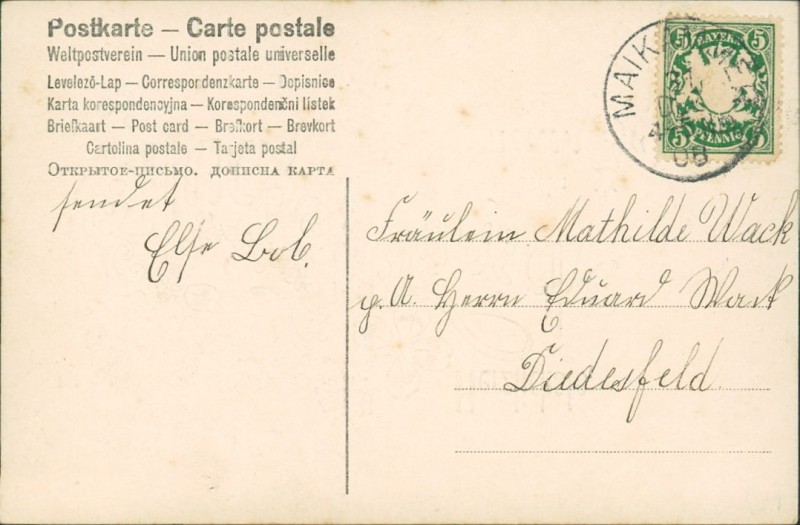 Postkarte — Carte postale
Weltpostverein — Union postale universelle
Levelező-Lap — Correspondenzkarte — Dopisnice
Karta korespondencyjna — Korespondenční lístek
Briefkaart — Post card — Brefkort — Brevkort
Cartolina postale — Tarjeta postal
Открытое-письмо. дописна карта
sendet
Else Bob.
MAIK
08
BAYERN
5 5
5 5
PFENNIG
Fräulein Mathilde Wack
p. A. Herrn Eduard Wack
Diedesfeld.